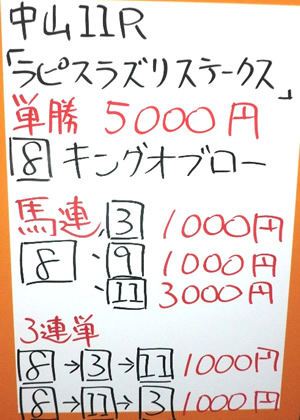 中山11R
「ラピスラズリステークス」
単勝 5000円
8 キングオブロー
馬連 3 1000円
8 : 9 1000円
: 11 3000円
3連単
8→3→11 1000円
8→11→3 1000円